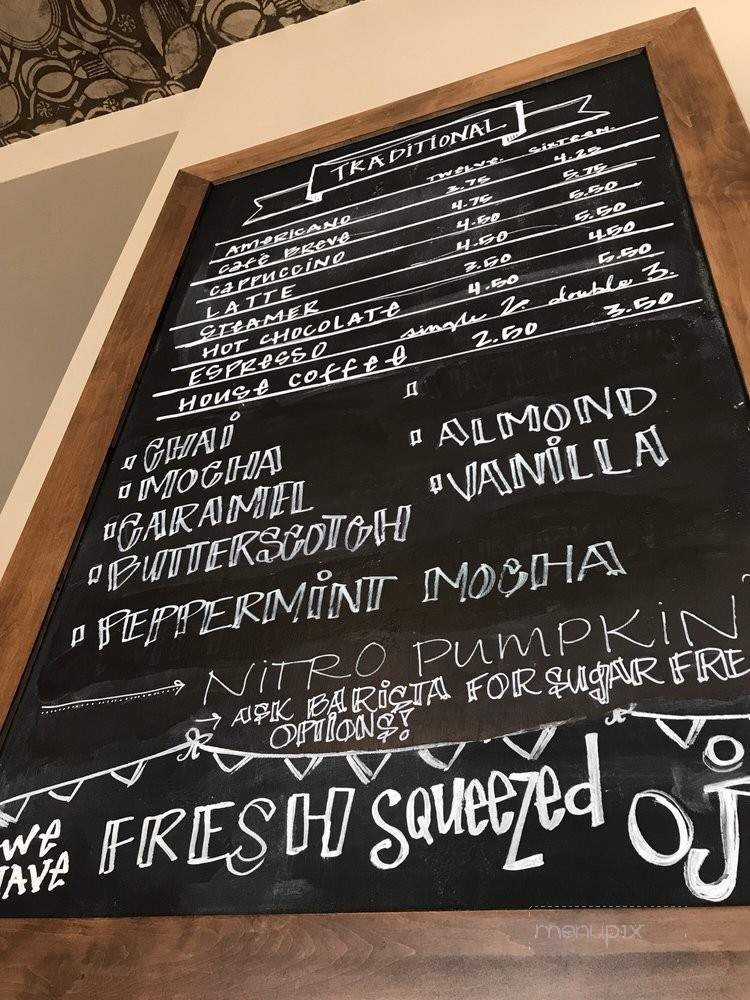 TRADITIONAL
TWELVE. SIXTEEN.
AMERICANO 3.75 4.25
Café BREVE 4.75 5.75
CAPPUCCINO 4.50 5.50
LATTE 4.50 5.50
STEAMER 3.50 4.50
HOT CHOCOLATE 4.50 5.50
ESPRESSO single 2. double 3.
HOUSE COFFEE 2.50 3.50
CHAI
MOCHA
CARAMEL
BUTTERSCOTCH
ALMOND
VANILLA
PEPPERMINT MOCHA
NITRO PUMPKIN
→ ASK BARISTA FOR SUGAR FRE
OPTIONS!
WE
HAVE
FRESH SQUEEZED
OJ
menupix